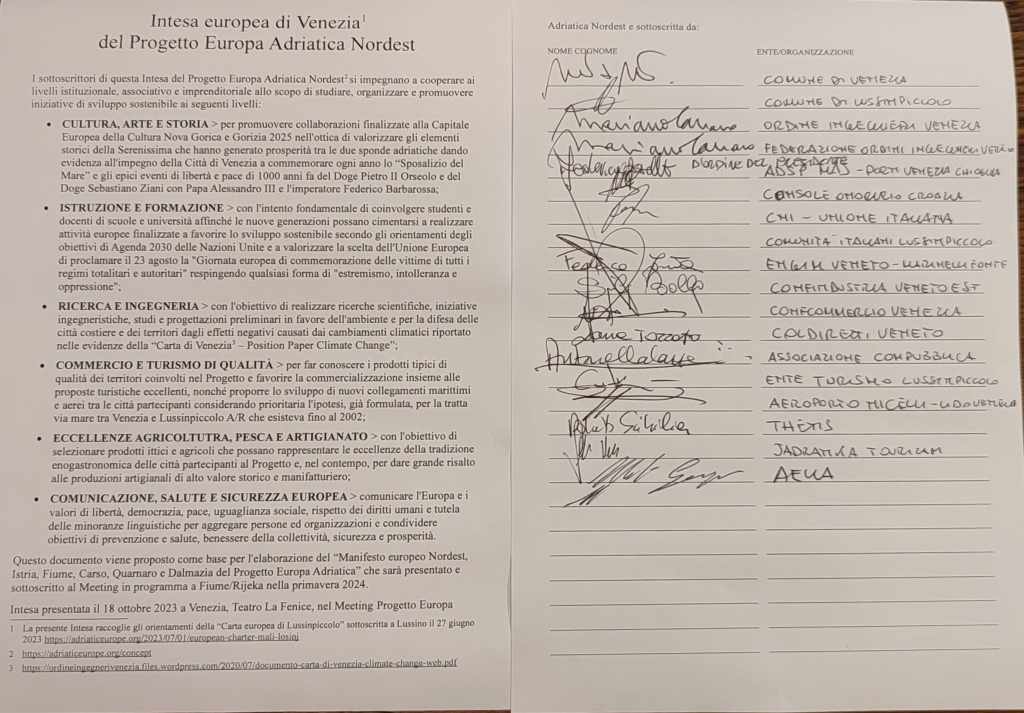 Intesa europea di Venezia1
del Progetto Europa Adriatica Nordest
I sottoscrittori di questa Intesa del Progetto Europa Adriatica Nordest2 si impegnano a cooperare ai
livelli istituzionale, associativo e imprenditoriale allo scopo di studiare, organizzare e promuovere
iniziative di sviluppo sostenibile ai seguenti livelli:
• CULTURA, ARTE E STORIA > per promuovere collaborazioni finalizzate alla Capitale
Europea della Cultura Nova Gorica e Gorizia 2025 nell'ottica di valorizzare gli elementi
storici della Serenissima che hanno generato prosperità tra le due sponde adriatiche dando
evidenza all'impegno della Città di Venezia a commemorare ogni anno lo “Sposalizio del
Mare” e gli epici eventi di libertà e pace di 1000 anni fa del Doge Pietro II Orseolo e del
Doge Sebastiano Ziani con Papa Alessandro III e l'imperatore Federico Barbarossa;
• ISTRUZIONE E FORMAZIONE > con l'intento fondamentale di coinvolgere studenti e
docenti di scuole e università affinché le nuove generazioni possano cimentarsi a realizzare
attività europee finalizzate a favorire lo sviluppo sostenibile secondo gli orientamenti degli
obiettivi di Agenda 2030 delle Nazioni Unite e a valorizzare la scelta dell'Unione Europea
di proclamare il 23 agosto la "Giornata europea di commemorazione delle vittime di tutti i
regimi totalitari e autoritari" respingendo qualsiasi forma di "estremismo, intolleranza e
oppressione";
• RICERCA E INGEGNERIA > con l'obiettivo di realizzare ricerche scientifiche, iniziative
ingegneristiche, studi e progettazioni preliminari in favore dell'ambiente e per la difesa delle
città costiere e dei territori dagli effetti negativi causati dai cambiamenti climatici riportato
nelle evidenze della “Carta di Venezia3 – Position Paper Climate Change”;
• COMMERCIO E TURISMO DI QUALITÀ > per far conoscere i prodotti tipici di
qualità dei territori coinvolti nel Progetto e favorire la commercializzazione insieme alle
proposte turistiche eccellenti, nonché proporre lo sviluppo di nuovi collegamenti marittimi
e aerei tra le città partecipanti considerando prioritaria l'ipotesi, già formulata, per la tratta
via mare tra Venezia e Lussinpiccolo A/R che esisteva fino al 2002;
• ECCELLENZE AGRICOLTUTRA, PESCA E ARTIGIANATO > con l'obiettivo di
selezionare prodotti ittici e agricoli che possano rappresentare le eccellenze della tradizione
enogastronomica delle città partecipanti al Progetto e, nel contempo, per dare grande risalto
alle produzioni artigianali di alto valore storico e manifatturiero;
• COMUNICAZIONE, SALUTE E SICUREZZA EUROPEA > comunicare l'Europa e i
valori di libertà, democrazia, pace, uguaglianza sociale, rispetto dei diritti umani e tutela
delle minoranze linguistiche per aggregare persone ed organizzazioni e condividere
obiettivi di prevenzione e salute, benessere della collettività, sicurezza e prosperità.
Questo documento viene proposto come base per l'elaborazione del “Manifesto europeo Nordest,
Istria, Fiume, Carso, Quarnaro e Dalmazia del Progetto Europa Adriatica” che sarà presentato e
sottoscritto al Meeting in programma a Fiume/Rijeka nella primavera 2024.
Intesa presentata il 18 ottobre 2023 a Venezia, Teatro La Fenice, nel Meeting Progetto Europa
1 La presente Intesa raccoglie gli orientamenti della “Carta europea di Lussinpiccolo” sottoscritta a Lussino il 27 giugno
2023 https://adriaticeurope.org/2023/07/01/european-charter-mali-losinj
2 https://adriaticeurope.org/concept
3 https://ordineingegnerivenezia.files.wordpress.com/2020/07/documento-carta-di-venezia-climate-change-web.pdf
Adriatica Nordest e sottoscritta da:
NOME COGNOME ENTE/ORGANIZZAZIONE
COMUNE DI VENEZIA
COMUNE DI LUSSINPICCOLO
Mariano ORDINE INGEGNERI VENEZIA
Mariano FEDERAZIONE ORDINI INGEGNERI VENETO
D'ORDINE DEL PRESIDENTE
ADSP MAS - PORTI VENEZIA CHIOGGIA
CONSOLE ONORARIO CROAZIA
CNI - UNIONE ITALIANA
COMUNITÀ ITALIANI LUSSINPICCOLO
Federico ENGIM VENETO -
CONFINDUSTRIA VENETO EST
CONFCOMMERCIO VENEZIA
Tozzato COLDIRETTI VENETO
Antonella ASSOCIAZIONE COMPUBBLICA
ENTE TURISMO LUSSINPICCOLO
AEROPORTO NICELLI - LIDO VENEZIA
THETIS
JADRANKA TOURISM